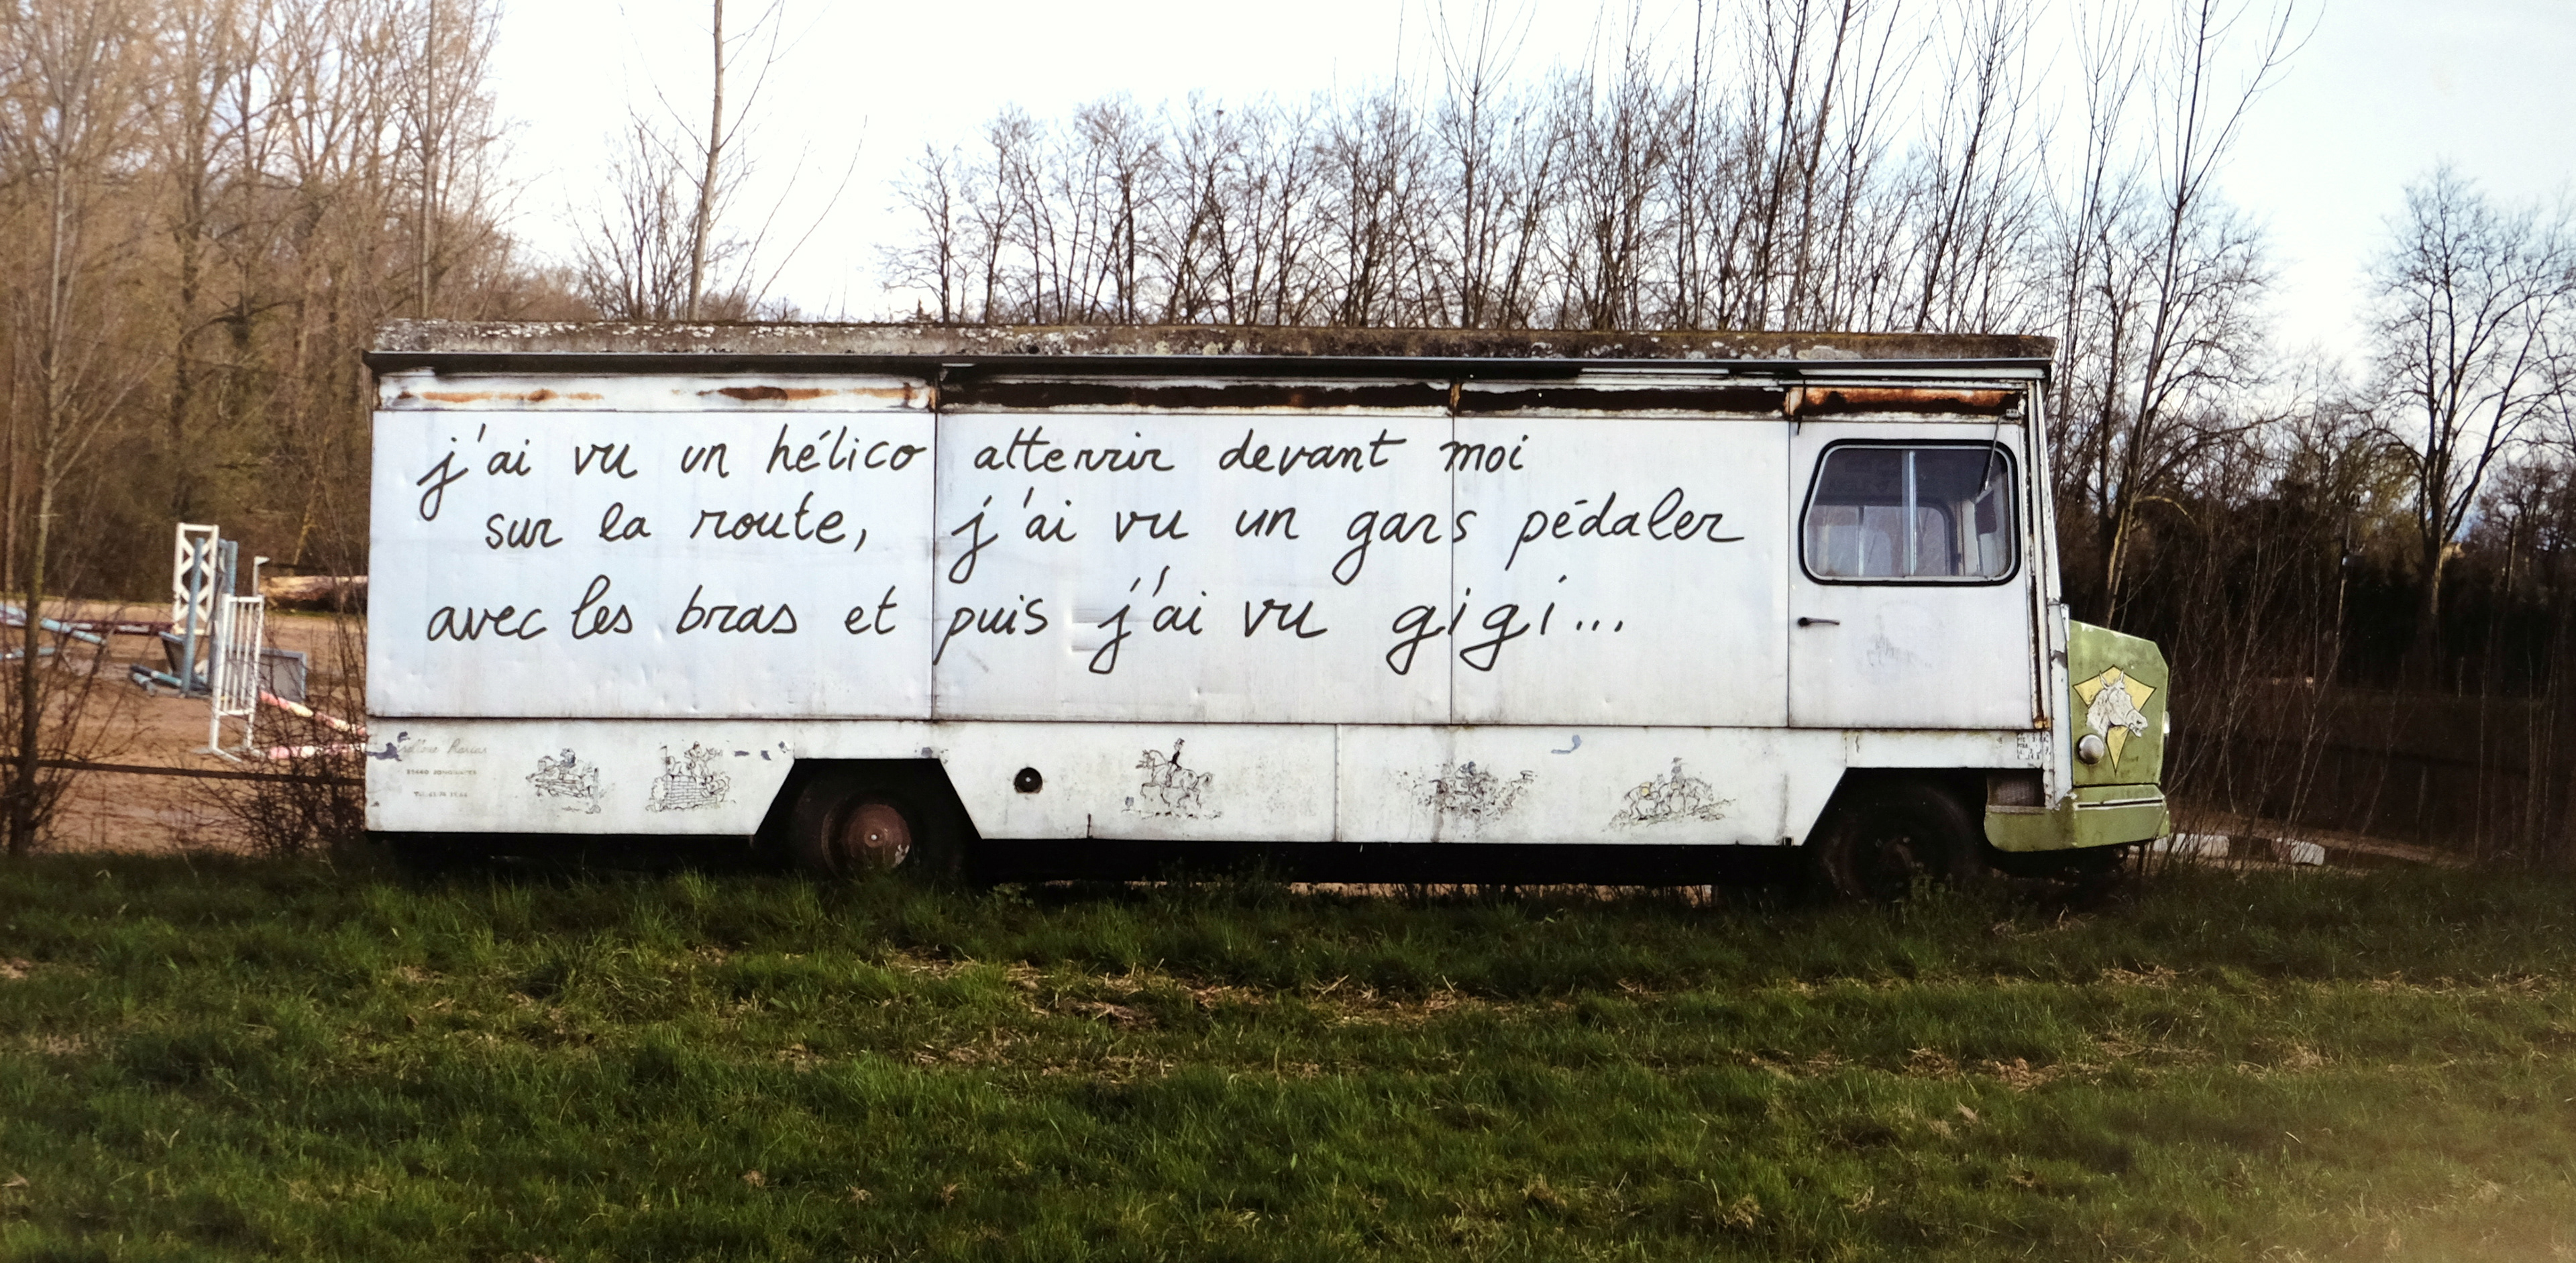 j'ai vu un hélico atterrir devant moi
sur la route, j'ai vu un gars pédaler
avec les bras et puis j'ai vu gigi...